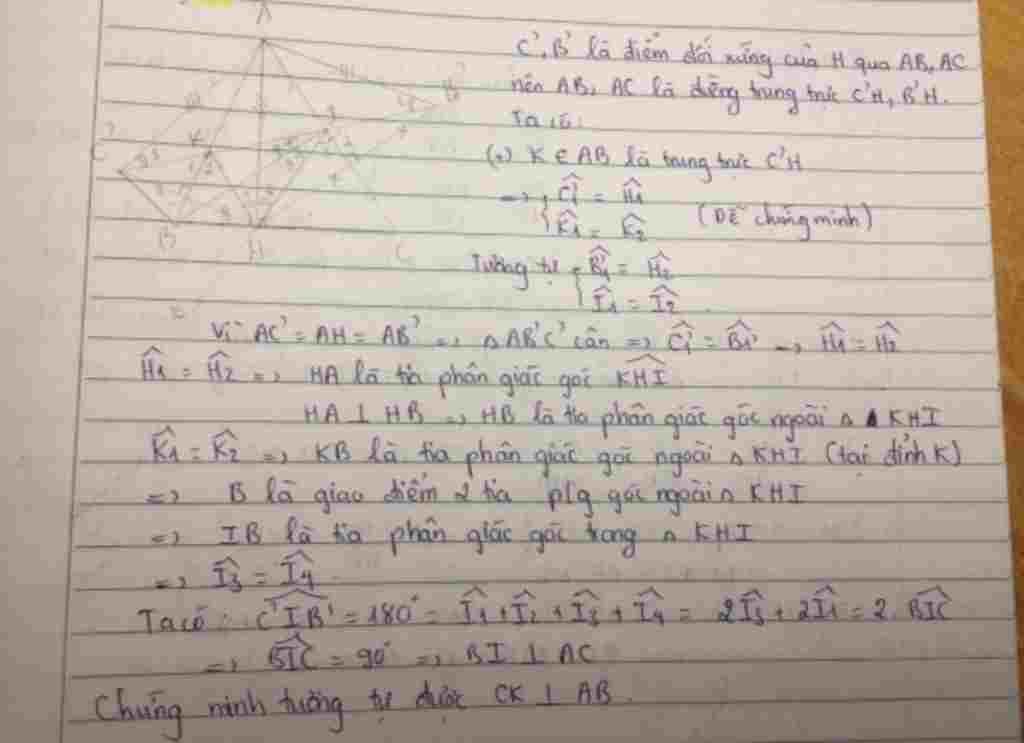 C', B' là điểm đối xứng của H qua AB, AC
nên AB, AC là đường trung trực C'H, B'H.
Ta có:
(+) K ∈ AB là trung trực C'H
=> { Ĉ'₁ = Ĥ₁
K̂₁ = K̂₂ (Dễ chứng minh)
Tương tự { B̂'₁ = Ĥ₂
Î₁ = Î₂
Vì AC' = AH = AB' => △ AB'C' cân => Ĉ'₁ = B̂₁' => Ĥ₁ = Ĥ₂
Ĥ₁ = Ĥ₂ => HA là tia phân giác góc KHI
HA ⊥ HB => HB là tia phân giác góc ngoài △ KHI
K̂₁ = K̂₂ => KB là tia phân giác góc ngoài △ KHI (tại đỉnh K)
=> B là giao điểm 2 tia p/g góc ngoài △ KHI
=> IB là tia phân giác góc trong △ KHI
=> Î₃ = Î₄
Ta có: C'IB' = 180° = Î₁ + Î₂ + Î₃ + Î₄ = 2Î₃ + 2Î₁ = 2. BIC
=> BIC = 90° => BI ⊥ AC
Chứng minh tương tự được CK ⊥ AB.
A
K
I
B'
C'
B
H
C